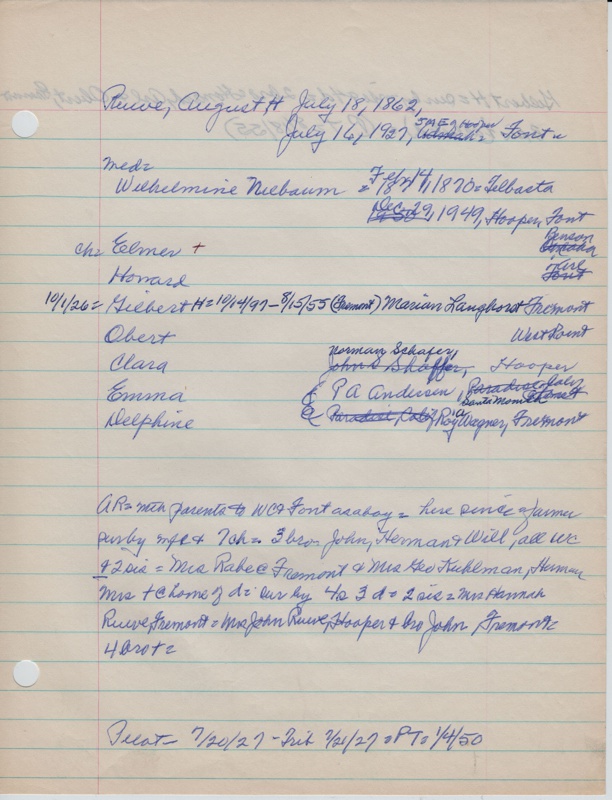 Ruwe, August H July 18, 1862,
July 16, 1927, 5 M E 7 Hooper = Font =
Med=
Wilhelmine Niebaum = Feb 14, 1870 = Telbasta
Dec. 29, 1949, Hooper, Font
ch= Elmer + Benson
Howard
10/1/26= Gilbert H = 10/14/97 - 8/15/55 (Fremont) Marian Langhorst Fremont
Obert West Point
Clara Norman Schafer, Hooper
John Shaffer,
Emma P A Anderson, Santa Monica
Delphine Paradise, Calif Roy Wagner, Fremont
AR = with parents to WC & Font as a boy = here since a farmer
sur by wife & 7 ch = 3 bro John, Herman & Will, all WC
& 2 sis = Mrs Rabe @ Fremont & Mrs Geo Kuhlman, Herman
Mrs + @ home of d = sur by 4 s 3 d = 2 sis = Mrs Hannah
Ruwe, Fremont = Mrs John Ruwe, Hooper & bro John, Fremont =
4 bro + =
Pilot = 7/20/27 - Trib 7/21/27 = PT = 1/4/50